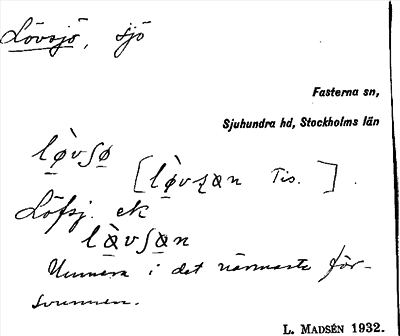 Lövsjö, sjö
Fasterna sn,
Sjuhundra hd, Stockholms län
lø̀vʃø
[lø̀vʒan Tis.].
Löfsj. ek
lø̀vʃøn
Numera i det närmaste för-
svunnen.
L. MADSÉN 1932.